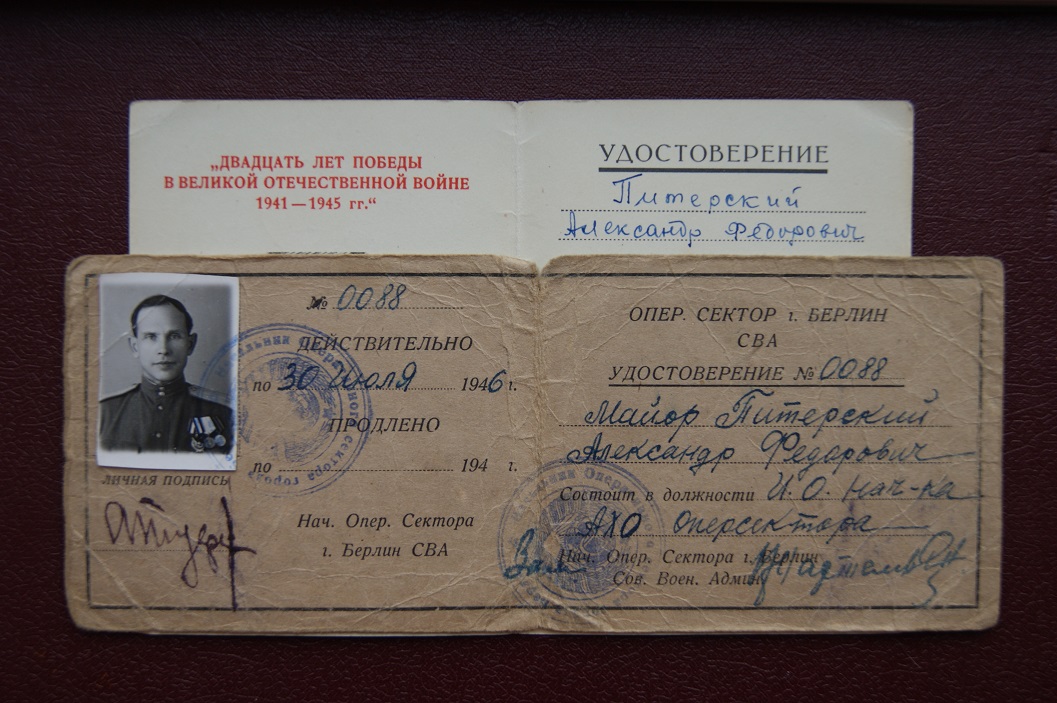 „ДВАДЦАТЬ ЛЕТ ПОБЕДЫ
В ВЕЛИКОЙ ОТЕЧЕСТВЕННОЙ ВОЙНЕ
1941—1945 гг.“
УДОСТОВЕРЕНИЕ
Питерский
Александр Федорович
№ 0088
ДЕЙСТВИТЕЛЬНО
по 30 июля 1946 г.
ПРОДЛЕНО
по 194 г.
ЛИЧНАЯ ПОДПИСЬ
Нач. Опер. Сектора
г. Берлин СВА
ОПЕР. СЕКТОР г. БЕРЛИН
СВА
УДОСТОВЕРЕНИЕ № 0088
Майор Питерский
Александр Федорович
Состоит в должности И.О. нач-ка
АХО оперсектора
Зам Нач. Опер. Сектора г. Берлин
Сов. Воен. Админ.